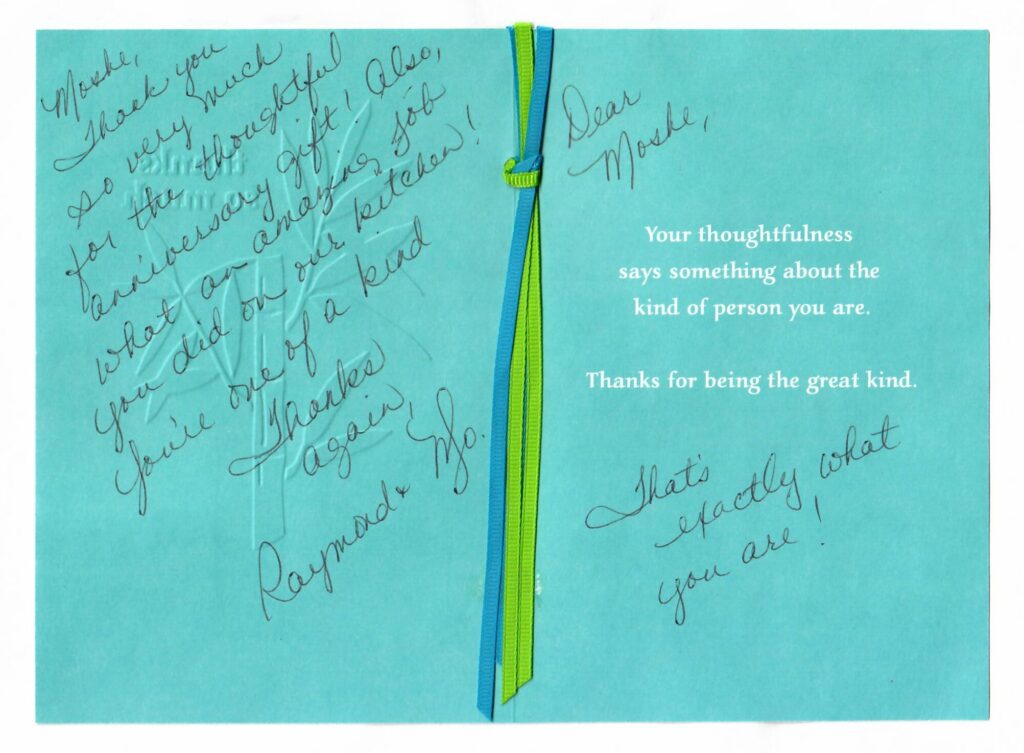 Moshe,
Thank you
so very much
for the thoughtful
anniversary gift! Also,
what an amazing job
you did on our kitchen!
You're one of a kind
Thanks
again,
Raymond & Mo.
thanks
so much
Dear
Moshe,
Your thoughtfulness
says something about the
kind of person you are.
Thanks for being the great kind.
That's
exactly what
you are!